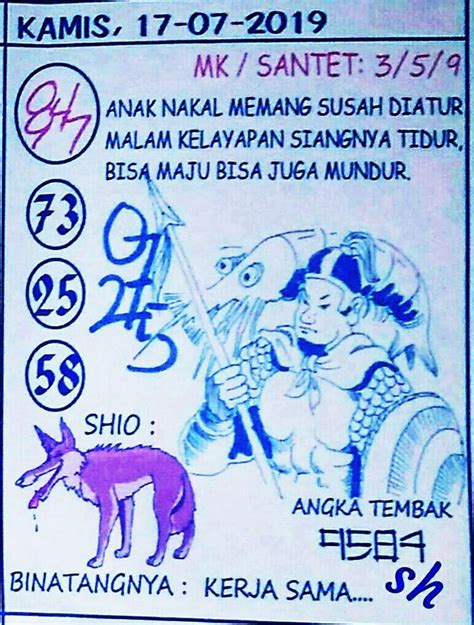 KAMIS, 17-07-2019
MK / SANTET: 3/5/9
ANAK NAKAL MEMANG SUSAH DIATUR
MALAM KELAYAPAN SIANGNYA TIDUR,
BISA MAJU BISA JUGA MUNDUR.
73
25
58
SHIO :
ANGKA TEMBAK
9584
sh
BINATANGNYA : KERJA SAMA....